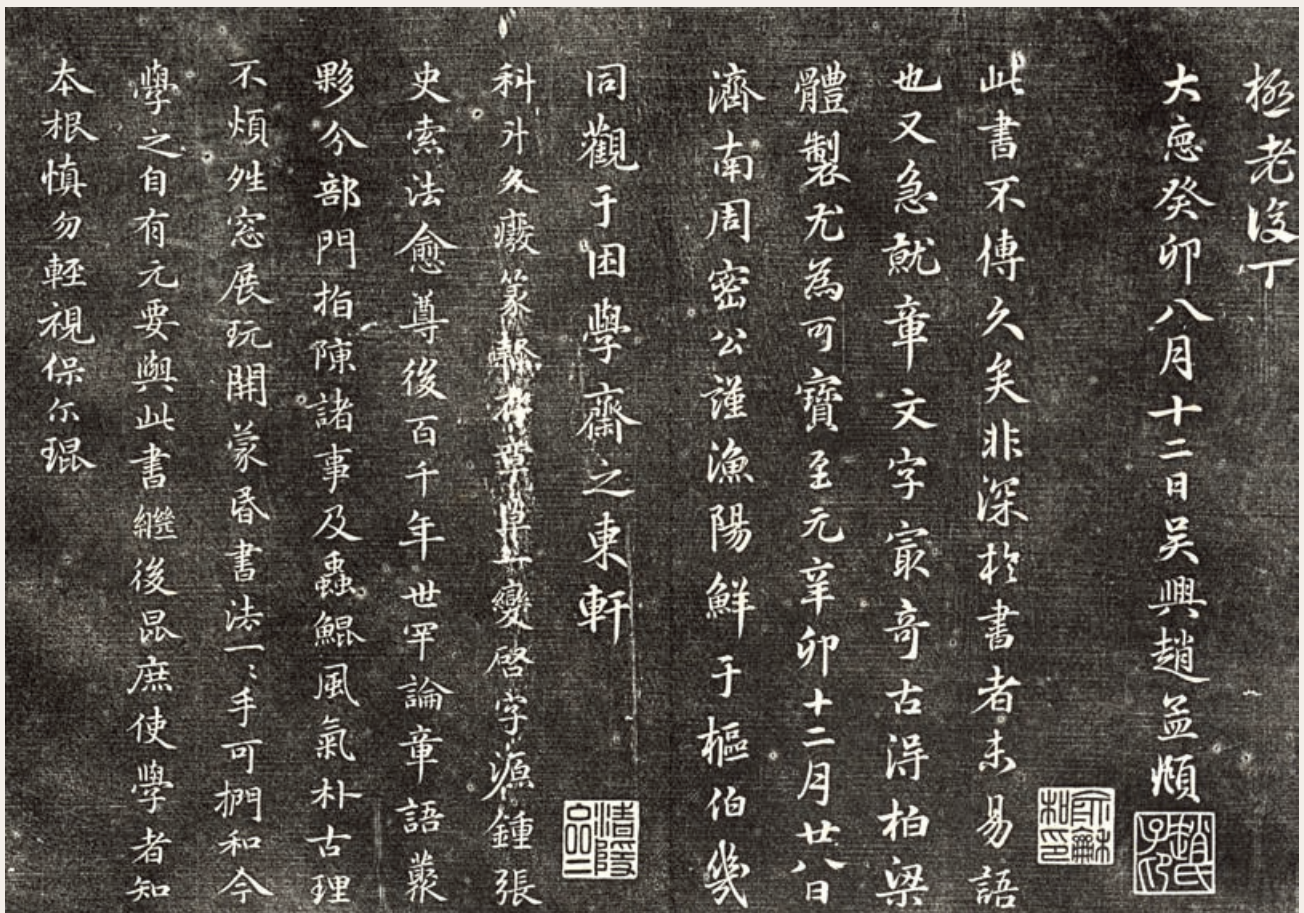 極老後丁
大惪癸卯八月十二日吴興趙孟頫
此書不傳久矣非深於書者未易語
也又急就章文字㝡奇古淂柏梁
體製尤為可寶至元辛卯十二月廿八日
濟南周密公謹漁陽鮮于樞伯幾
同觀于困學齋之東軒
科斗久癈篆章草一變啓字源鍾張
史索法愈尊後百千年世罕論章語藂
夥分部門指陳諸事及蟲鯤風氣朴古理
不煩夝窓展玩開蒙昏書法一〻手可捫和今
學之自有元要與此書繼後昆庶使學者知
本根慎勿輕視保尒琨